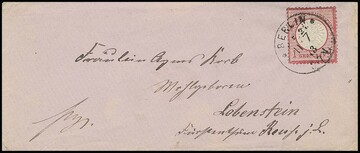 BERLIN
Fräulein Agnes Korb
Wohlgeboren
Lobenstein
Fürstenthum Reuß j. L.